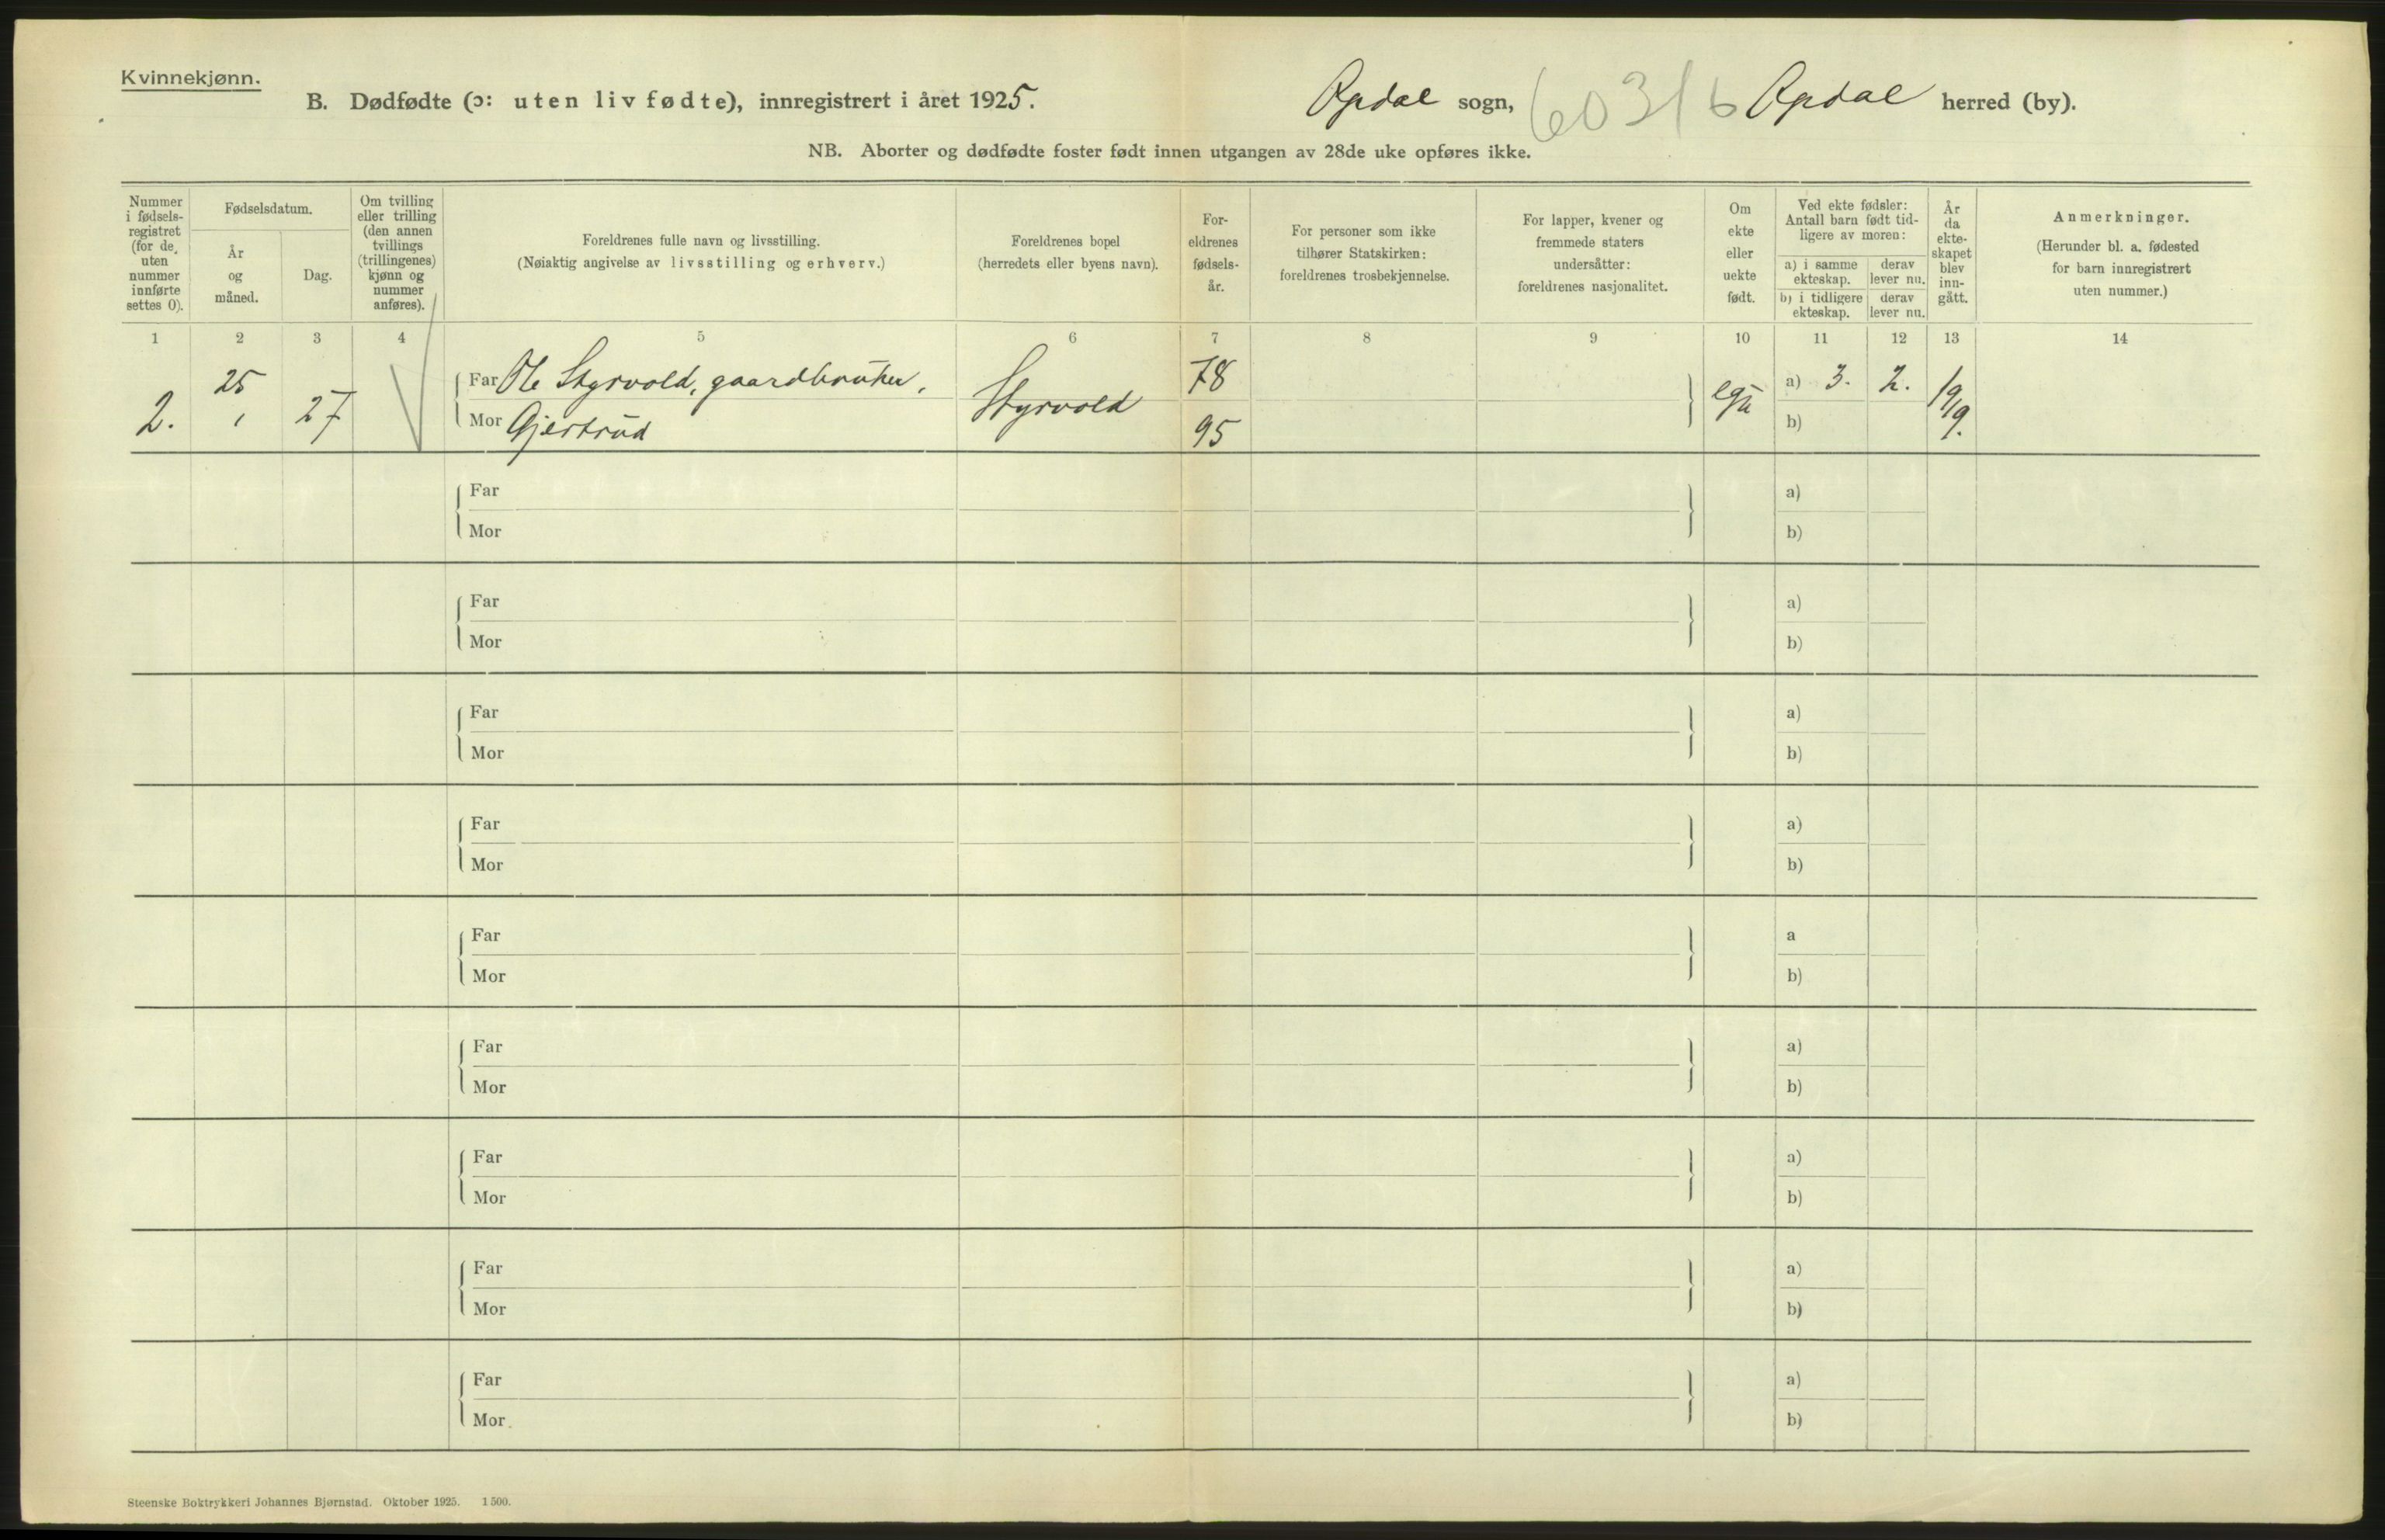 Kvinnekjønn.
B. Dødfødte (ɔ: uten liv fødte), innregistrert i året 1925. Opdal sogn, 603/6 Opdal herred (by).
NB. Aborter og dødfødte foster født innen utgangen av 28de uke opføres ikke.
Nummer i fødsels-registret (for de uten nummer innførte settes 0).
Fødselsdatum.
År og måned.
Dag.
Om tvilling eller trilling (den annen tvillings (trillingenes) kjønn og nummer anføres).
Foreldrenes fulle navn og livsstilling.
(Nøiaktig angivelse av livsstilling og erhverv.)
Foreldrenes bopel
(herredets eller byens navn).
For-eldrenes fødsels-år.
For personer som ikke tilhører Statskirken: foreldrenes trosbekjennelse.
For lapper, kvener og fremmede staters undersåtter: foreldrenes nasjonalitet.
Om ekte eller uekte født.
Ved ekte fødsler: Antall barn født tid-ligere av moren:
a) i samme ekteskap. derav lever nu.
b) i tidligere ekteskap. derav lever nu.
År da ekte-skapet blev inn-gått.
Anmerkninger.
(Herunder bl. a. fødested for barn innregistrert uten nummer.)
1 2 3 4 5 6 7 8 9 10 11 12 13 14
2. 25 1 27 Far Ole Styrvold, gaardbruker. Styrvold 78 egte a) 3. 2. 1919.
Mor Gjertrud 95 b)
Far a)
Mor b)
Far a)
Mor b)
Far a)
Mor b)
Far a)
Mor b)
Far a
Mor b)
Far a)
Mor b)
Far a)
Mor b)
Far a)
Mor b)
Far a)
Mor. b)
Steenske Boktrykkeri Johannes Bjørnstad. Oktober 1925. 1500.